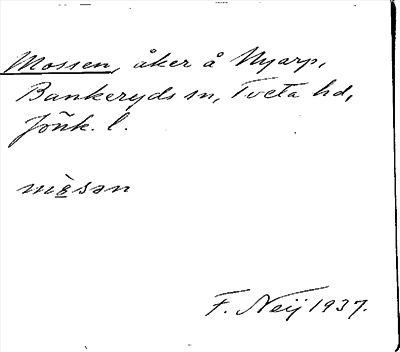 Mossen, åker å Nyarp,
Bankeryds sn, Tveta hd,
Jönk. l.
mòsən
F. Neij 1937.